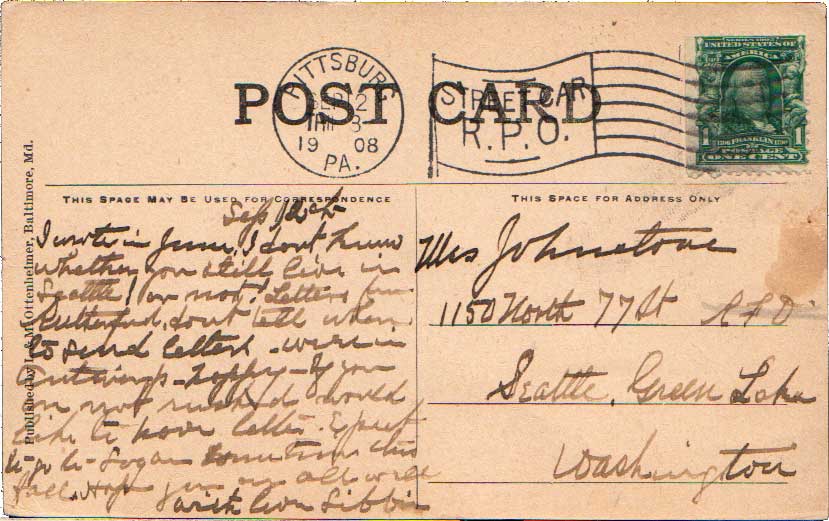 POST CARD
PITTSBURG
SEP 12
1908
PA.
STREET CAR
R.P.O.
SERIES 1902
UNITED STATES OF
AMERICA
1 FRANKLIN 1
POSTAGE
ONE CENT
Published by I. & M. Ottenheimer, Baltimore, Md.
THIS SPACE MAY BE USED FOR CORRESPONDENCE
THIS SPACE FOR ADDRESS ONLY
Sep 12th
I wrote in June, I dont know
whether you still live in
Seattle or not. Letters from
Rutherford dont tell when
to send letters
If you
are not rushed would
like to have letter. Expect
to go to Logan sometime this
fall. Hope you are all well
with love Libbie
Mrs Johnstone
1150 North 77 St R F D
Seattle, Green Lake
Washington